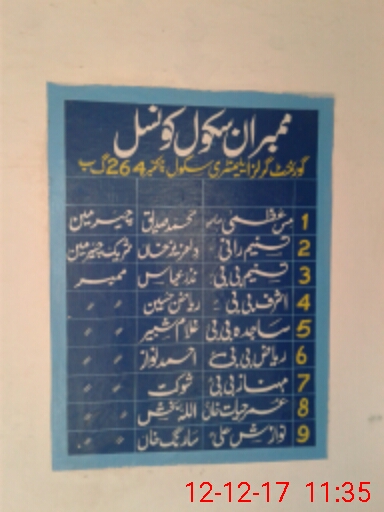 ممبران سکول کونسل
گورنمنٹ گرلز ایلیمنٹری سکول چکنمبر 264 گ ب
1 مس عظمی محمد صدیق چیرمین
2 تسنیم رانی دلعزیز خاں شریک چیرمین
3 تسنیم بی بی نذر عباس ممبر
4 اشرف بی بی ریاض حسین 〃 〃
5 ساجدہ بی بی غلام شبیر 〃 〃
6 ریاض بی بی احمد نواز 〃 〃
7 مہناز بی بی شوکت 〃 〃
8 عمر حیات خان اللہ بخش 〃 〃
9 نوازش علی سارنگ خاں 〃 〃
12-12-17 11:35